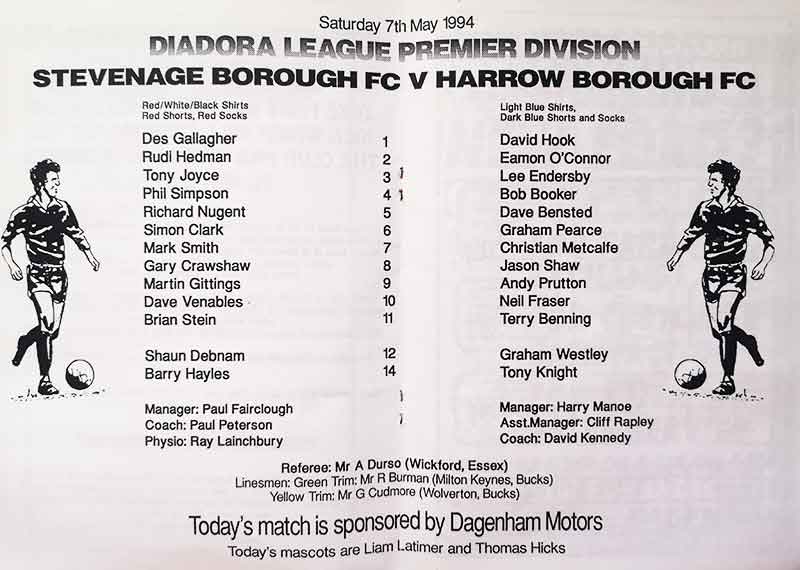 Saturday 7th May 1994
DIADORA LEAGUE PREMIER DIVISION
STEVENAGE BOROUGH FC V HARROW BOROUGH FC
Red/White/Black Shirts
Red Shorts, Red Socks
Light Blue Shirts,
Dark Blue Shorts and Socks
Des Gallagher 1 David Hook
Rudi Hedman 2 Eamon O'Connor
Tony Joyce 3 Lee Endersby
Phil Simpson 4 Bob Booker
Richard Nugent 5 Dave Bensted
Simon Clark 6 Graham Pearce
Mark Smith 7 Christian Metcalfe
Gary Crawshaw 8 Jason Shaw
Martin Gittings 9 Andy Prutton
Dave Venables 10 Neil Fraser
Brian Stein 11 Terry Benning
Shaun Debnam 12 Graham Westley
Barry Hayles 14 Tony Knight
Manager: Paul Fairclough
Coach: Paul Peterson
Physio: Ray Lainchbury
Manager: Harry Manoe
Asst.Manager: Cliff Rapley
Coach: David Kennedy
Referee: Mr A Durso (Wickford, Essex)
Linesmen: Green Trim: Mr R Burman (Milton Keynes, Bucks)
Yellow Trim: Mr G Cudmore (Wolverton, Bucks)
Today's match is sponsored by Dagenham Motors
Today's mascots are Liam Latimer and Thomas Hicks